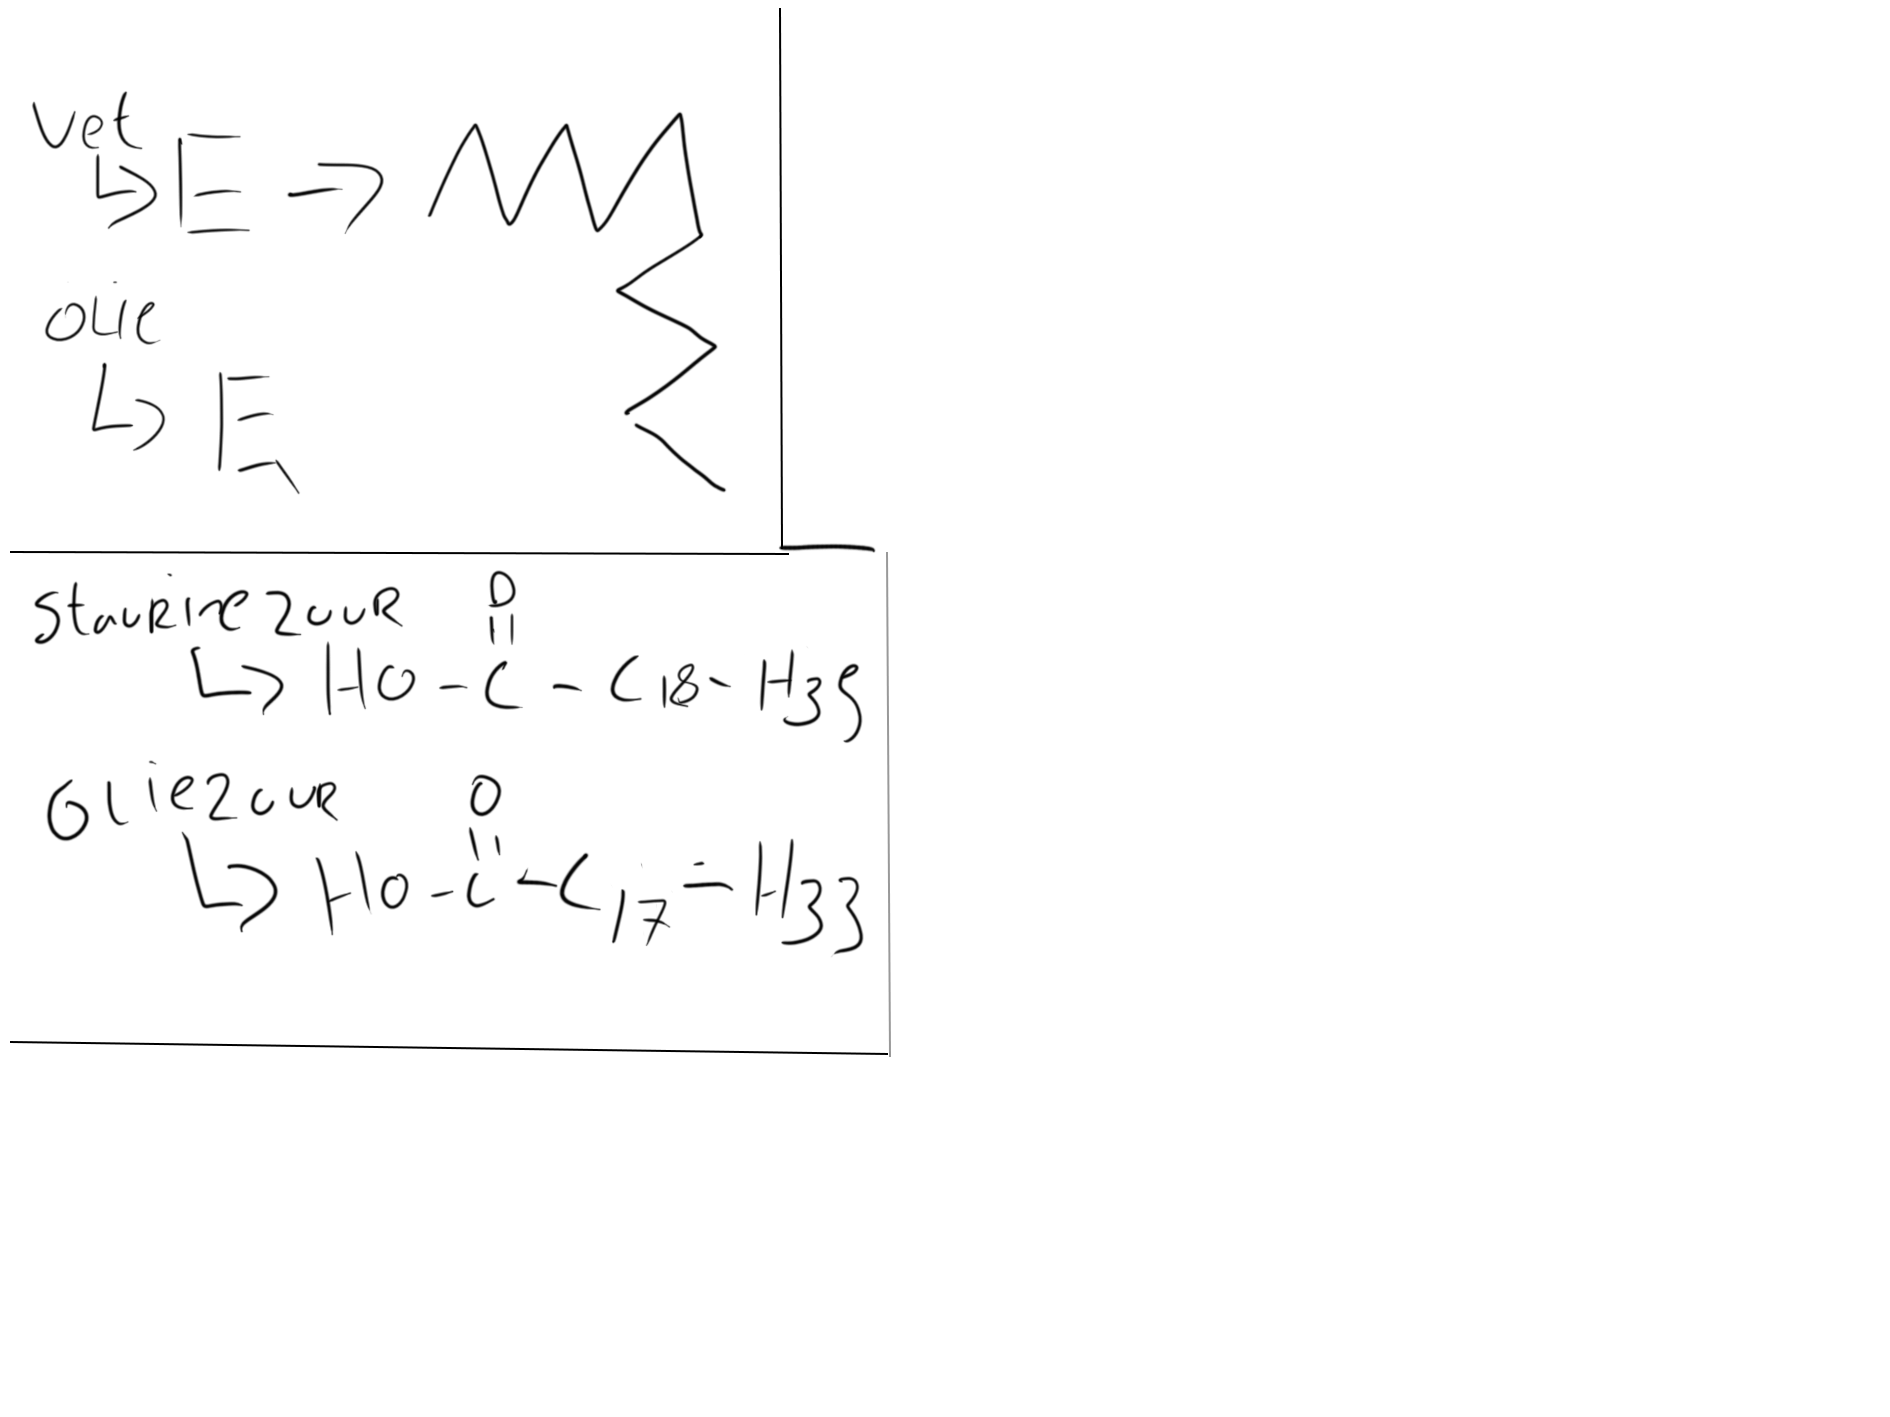 vet
E →
olie
E
Staurinezuur
O
||
HO - C - C18 - H35
Oliezuur
O
||
HO - C - C17 = H33